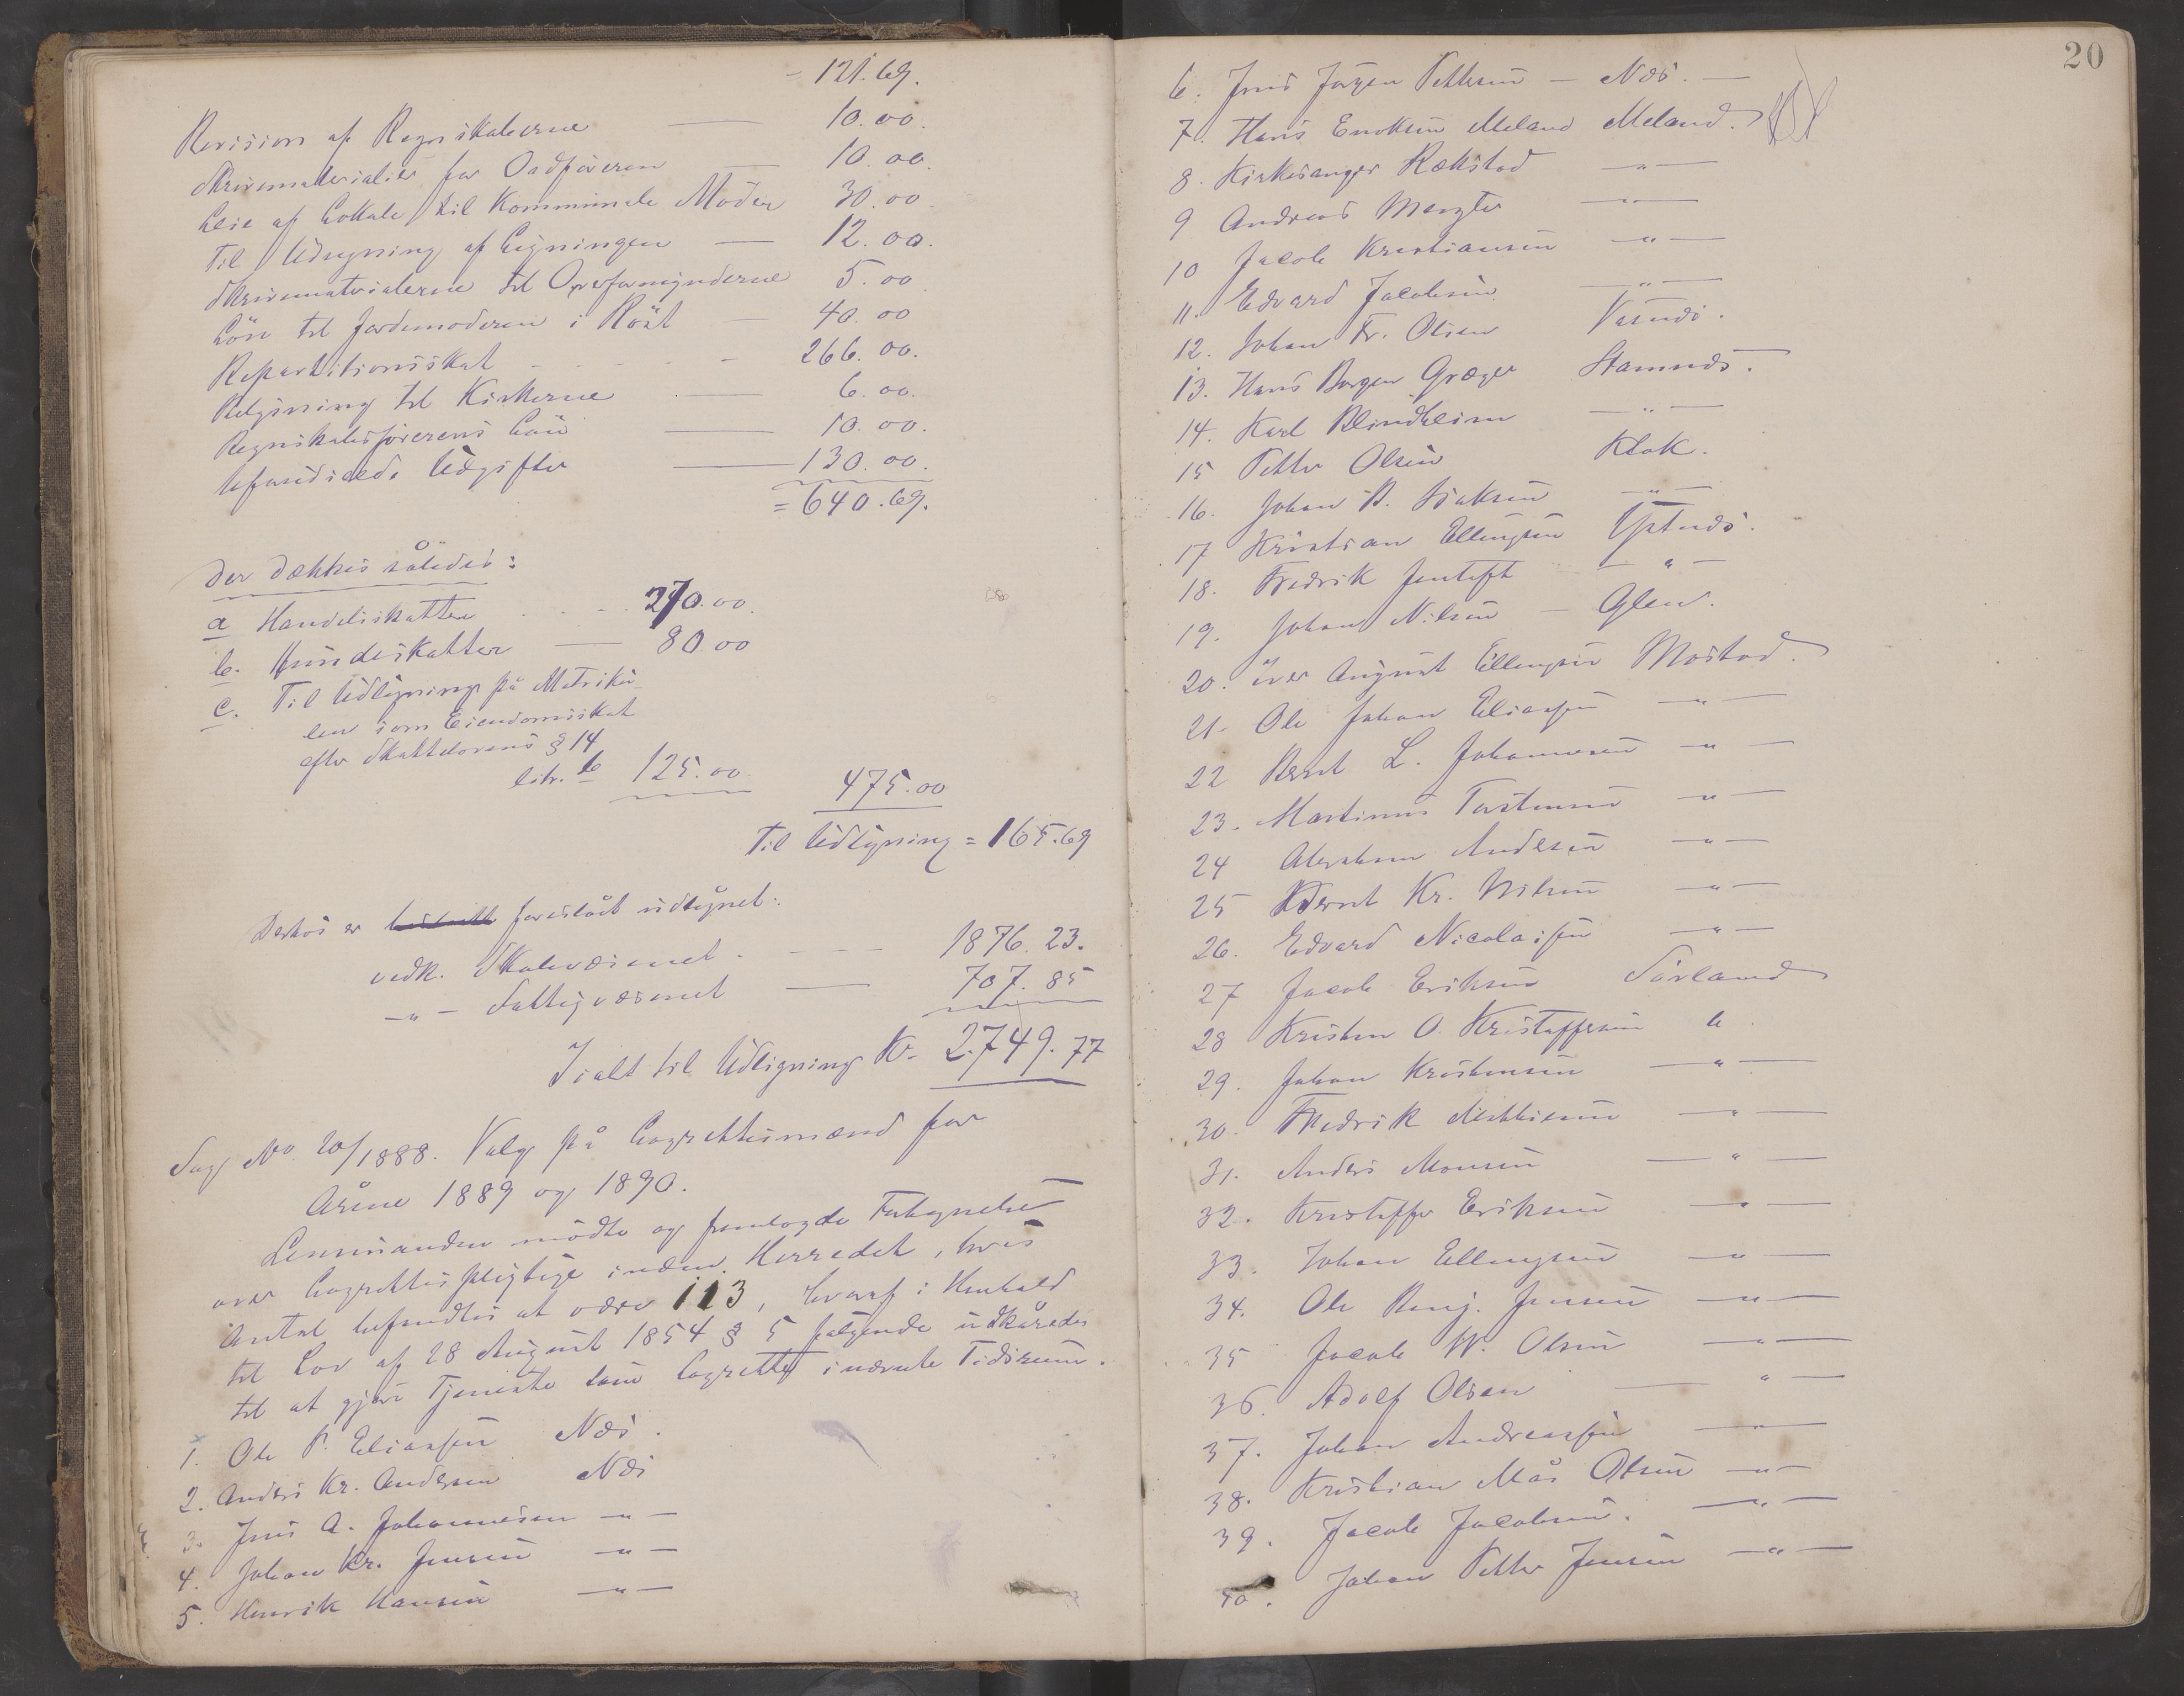 - 121.69.
Revision af Regnskaberne — 10.00.
Skrivematerialier for Ordføreren — 10.00.
Leie af Lokale til Kommunale Møder 30.00
Til Udregning af Ligningen — 12.00.
Skrivematerialerne til Overformynderne 5.00
Løn til Jordemoderen i Röst — 40.00
Repartitionsskat - - - - 266.00.
Belysning til Kirkerne — 6.00.
Regnskabsførerens Løn — 10.00.
Uforudseede Udgifter — 130.00.
= 640.69.
Der dækkes således:
a Handelsskatten - - - 270.00.
b. Hundeskatter — 80 00
c. Til Udligning på Matriku-
len som Eiendomsskat
efter Skattelovens § 14
litr. b 125.00 475.00
Til Udligning = 165.69
Derhos er foreslået udlignet:
vedk. Skolevæsenet - — 1876.23.
— " — Fattigvæsenet — 707.85
Ialt til Udligning Kr. 2.749.77
Sag No 20/1888. Valg på Lagrettesmænd for
Årene 1889 og 1890.
Lensmanden mødte og fremlagde Fortegnelse
over Lagrettespligtige inden Herredet, hvis
Antal befandtes at være 113, hvoraf i Henhold
til Lov af 28 August 1854 § 5 følgende udkåredes
til at gjøre Tjeneste som Lagrette i nævnte Tidsrum.
1. Ole P. Eliassen Næs.
2. Anders Kr. Andersen Næs
3. Jens A. Johannesen — " —
4. Johan Kr. Jensen — " —
5. Henrik Hansen — " —
20
6. Jens Jørgen Pettersen — Næs. —
7. Hans Enoksen Meland Meland.
8. Kirkesanger Rækstad — " —
9 Andreas — " —
10 Jacob Kristiansen — " —
11. Edvard Jacobsen — " —
12. Johan Fr. Olsen
13. Hans Borgen Græger Stamnæs.
14. Karl Blindheim — " —
15 Petter Olsen Klak.
16. Johan B. Isaksen — " —
17 Kristian Ellingsen Ystnæs.
18. Fredrik Jentoft — " —
19. Johan Nilsen — Glea.
20. Iver August Ellingsen Mostad.
21. Ole Johan Eliassen — " —
22 Bernt L. Johannesen — " —
23. Martinus Torstensen — " —
24 Abraham Andersen — " —
25 Bernt Kr. Nilsen — " —
26. Edvard Nicolaisen — " —
27 Jacob Eriksen Sørland
28 Kristen O. Kristoffersen "
29. Johan Kristensen — " —
30. Fredrik Mathisen — " —
31. Anders Monsen — " —
32. Kristoffer Eriksen — " —
33. Johan Ellingsen — " —
34. Ole Benj. Jensen — " —
35 Jacob W. Olsen — " —
36. Adolf Olsen — " —
37. Johan Andreassen — " —
38. Kristian Mås Olsen — " —
39. Jacob Jacobsen. — " —
40. Johan Petter Jensen — " —